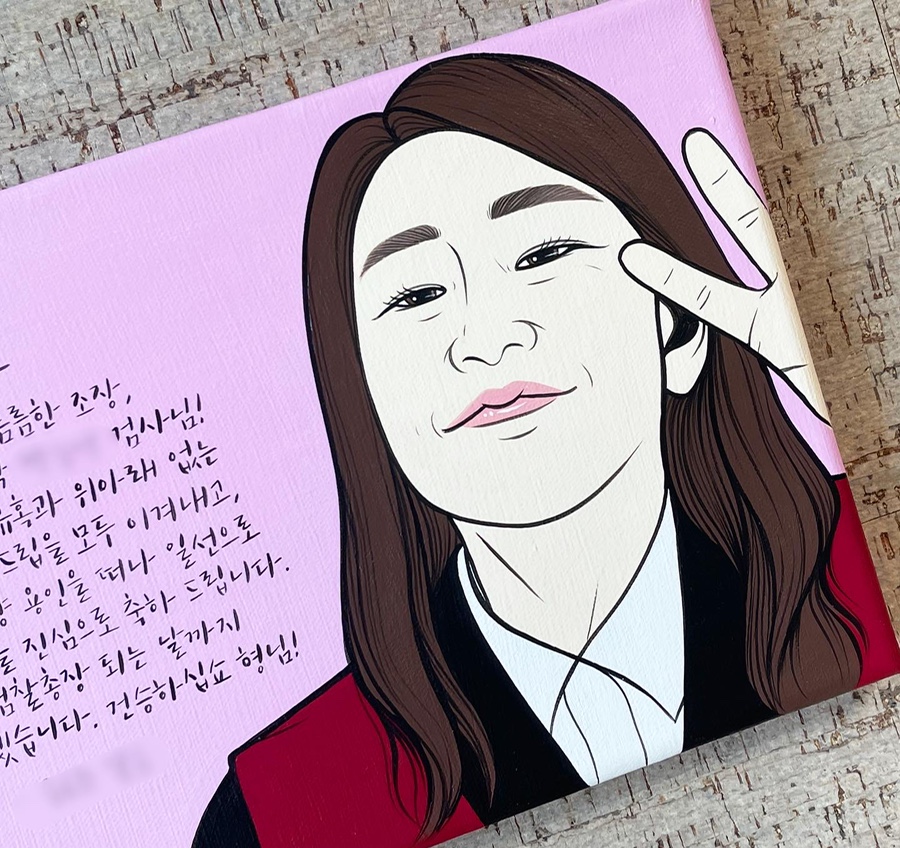 늠름한 조장,
검사님!
유혹과 위아래 없는
드립을 모두 이겨내고,
용인을 떠나 일선으로
를 진심으로 축하 드립니다.
검찰총장 되는 날까지
겠습니다. 건승하십쇼 형님!